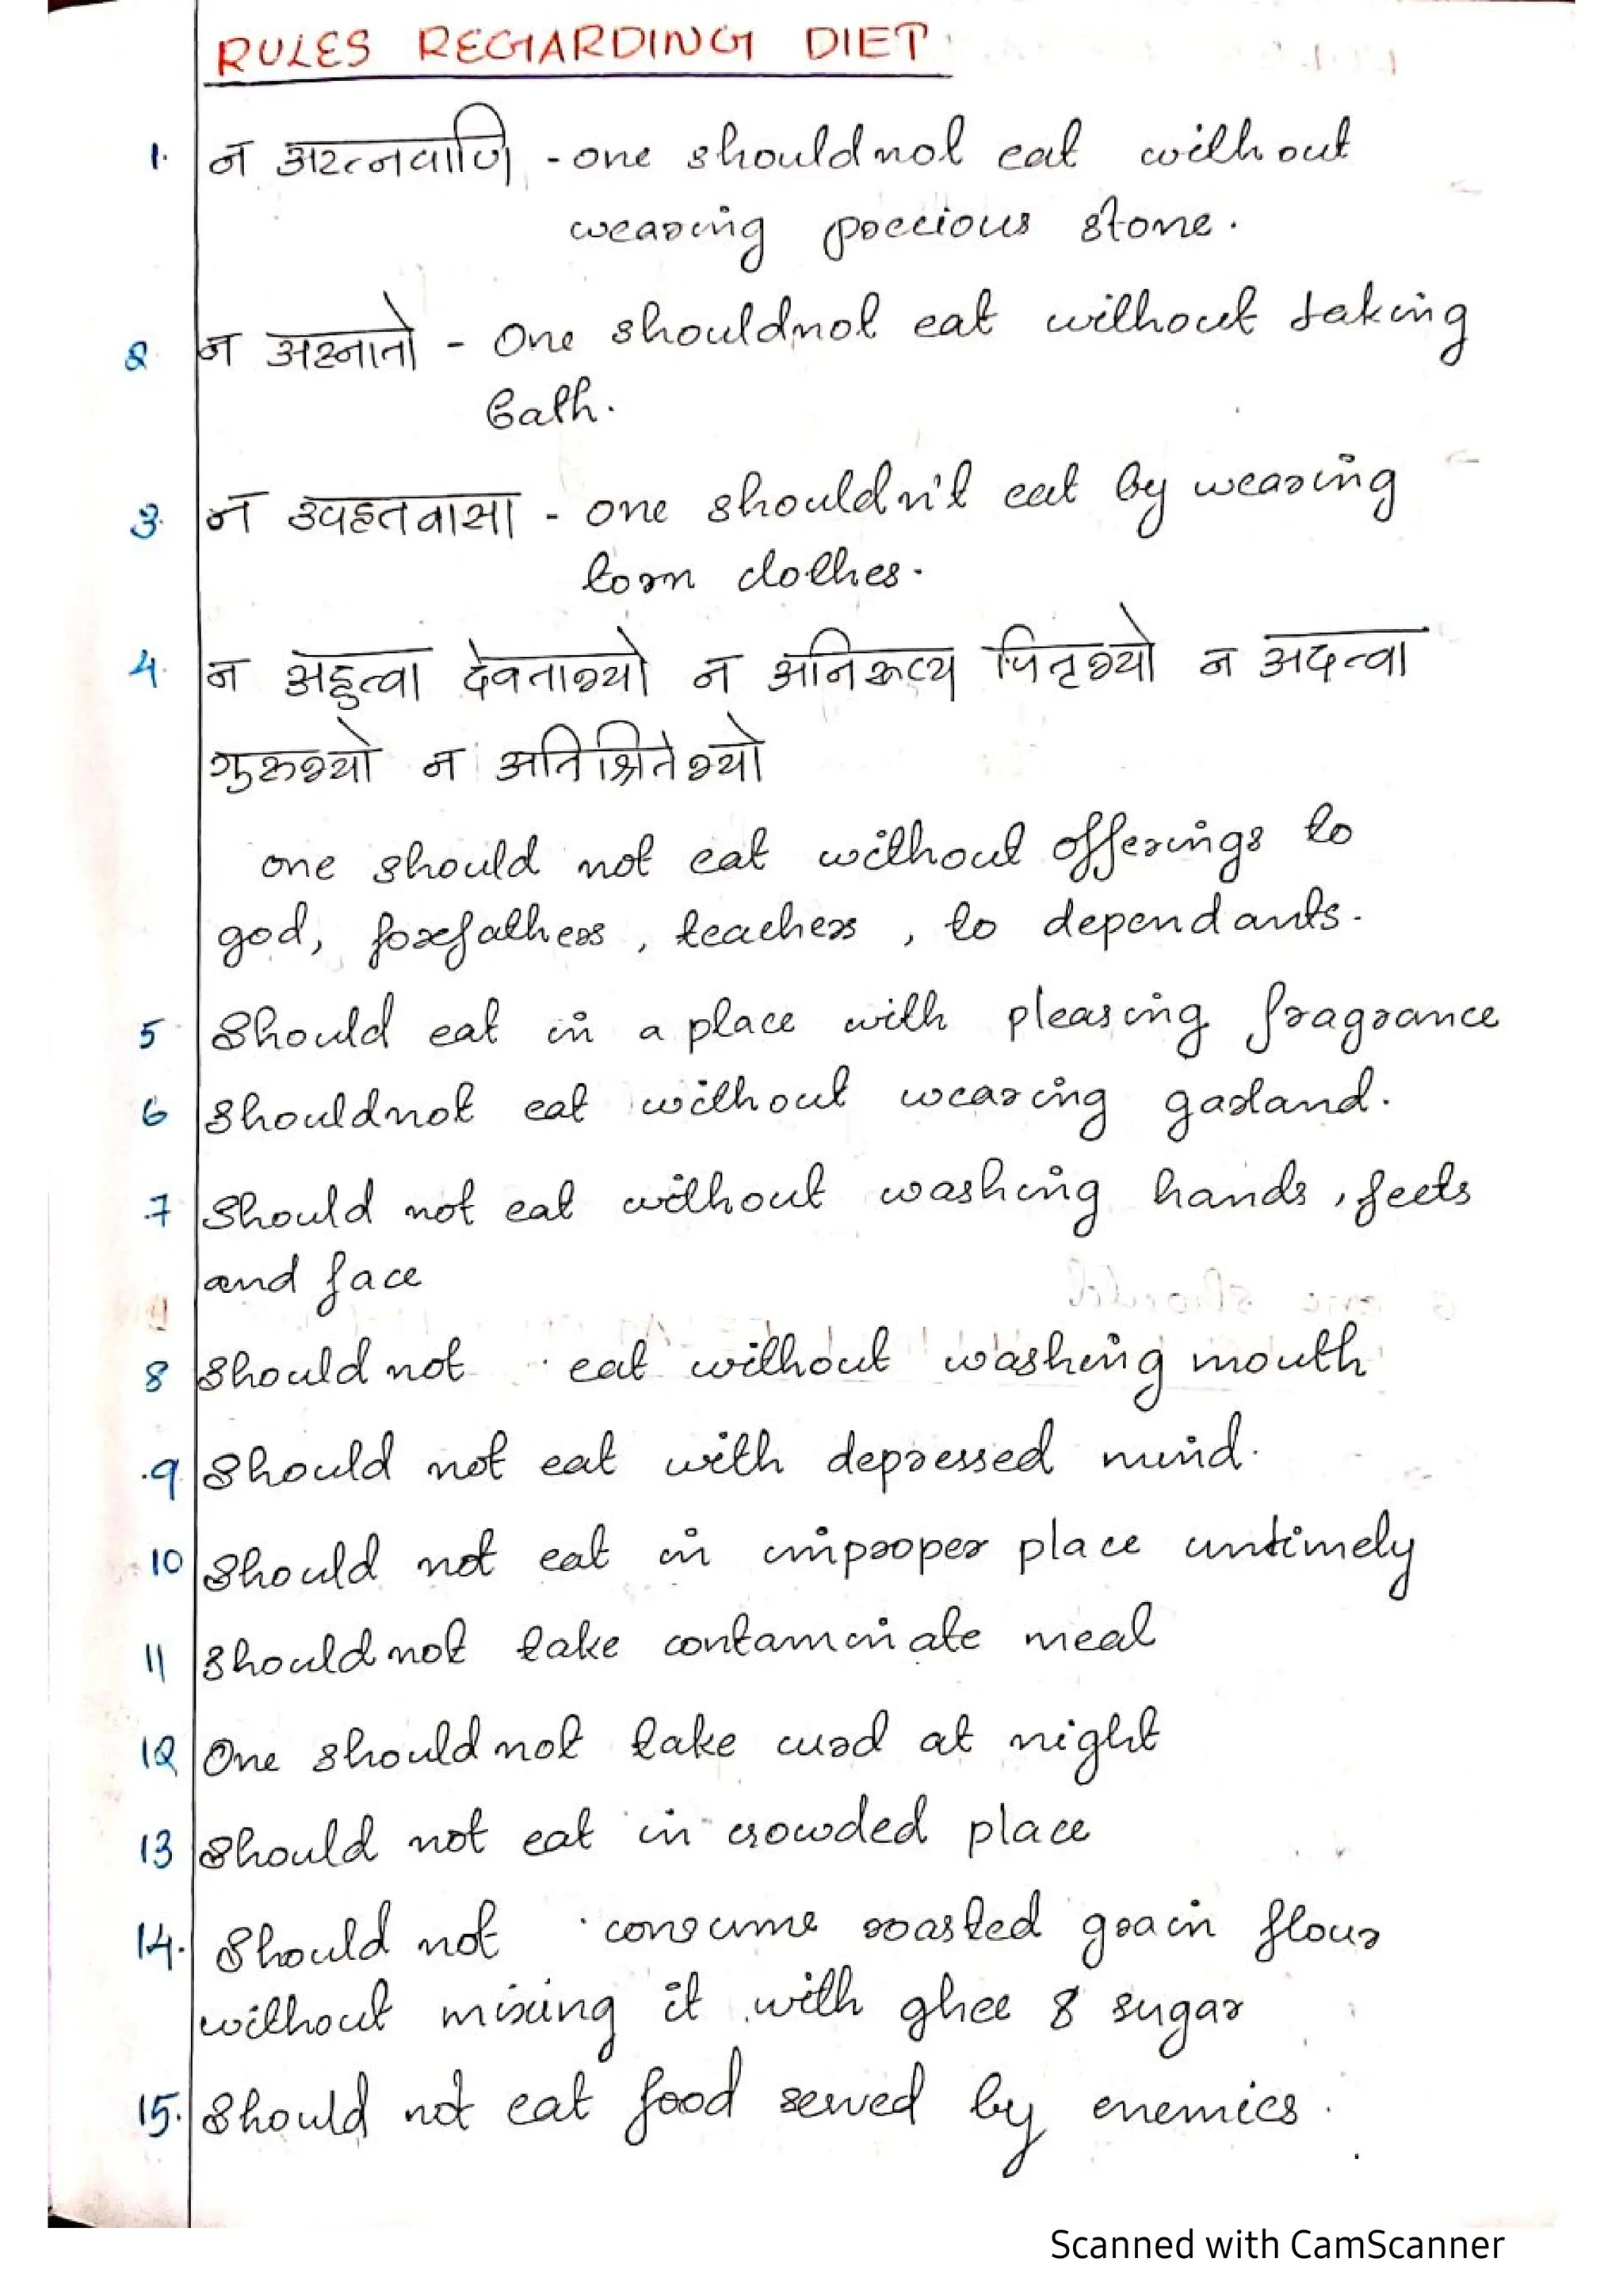 RULES REGARDING DIET
1. न अरत्नपाणि - one shouldnot eat without
wearing precious stone.
2 न अस्नातो - One shouldnot eat without taking
Bath.
3. न उपहतवासा - one shouldn't eat by wearing
torn clothes.
4. न अहुत्वा देवताभ्यो न अनिरूप्य पितृभ्यो न अदत्वा
गुरुभ्यो न अतिश्रितेभ्यो
one should not eat without offerings to
god, forefathers, teachers, to dependants.
5 Should eat in a place with pleasing fragrance
6 Shouldnot eat without wearing garland.
7 Should not eat without washing hands, feets
and face
8 Should not eat without washing mouth
9 Should not eat with depressed mind.
10 Should not eat in improper place untimely
11 Should not take contaminate meal
12 One should not take curd at night
13 Should not eat in crowded place
14. Should not consume roasted grain flour
without mixing it with ghee & sugar
15. Should not eat food served by enemies.
Scanned with CamScanner